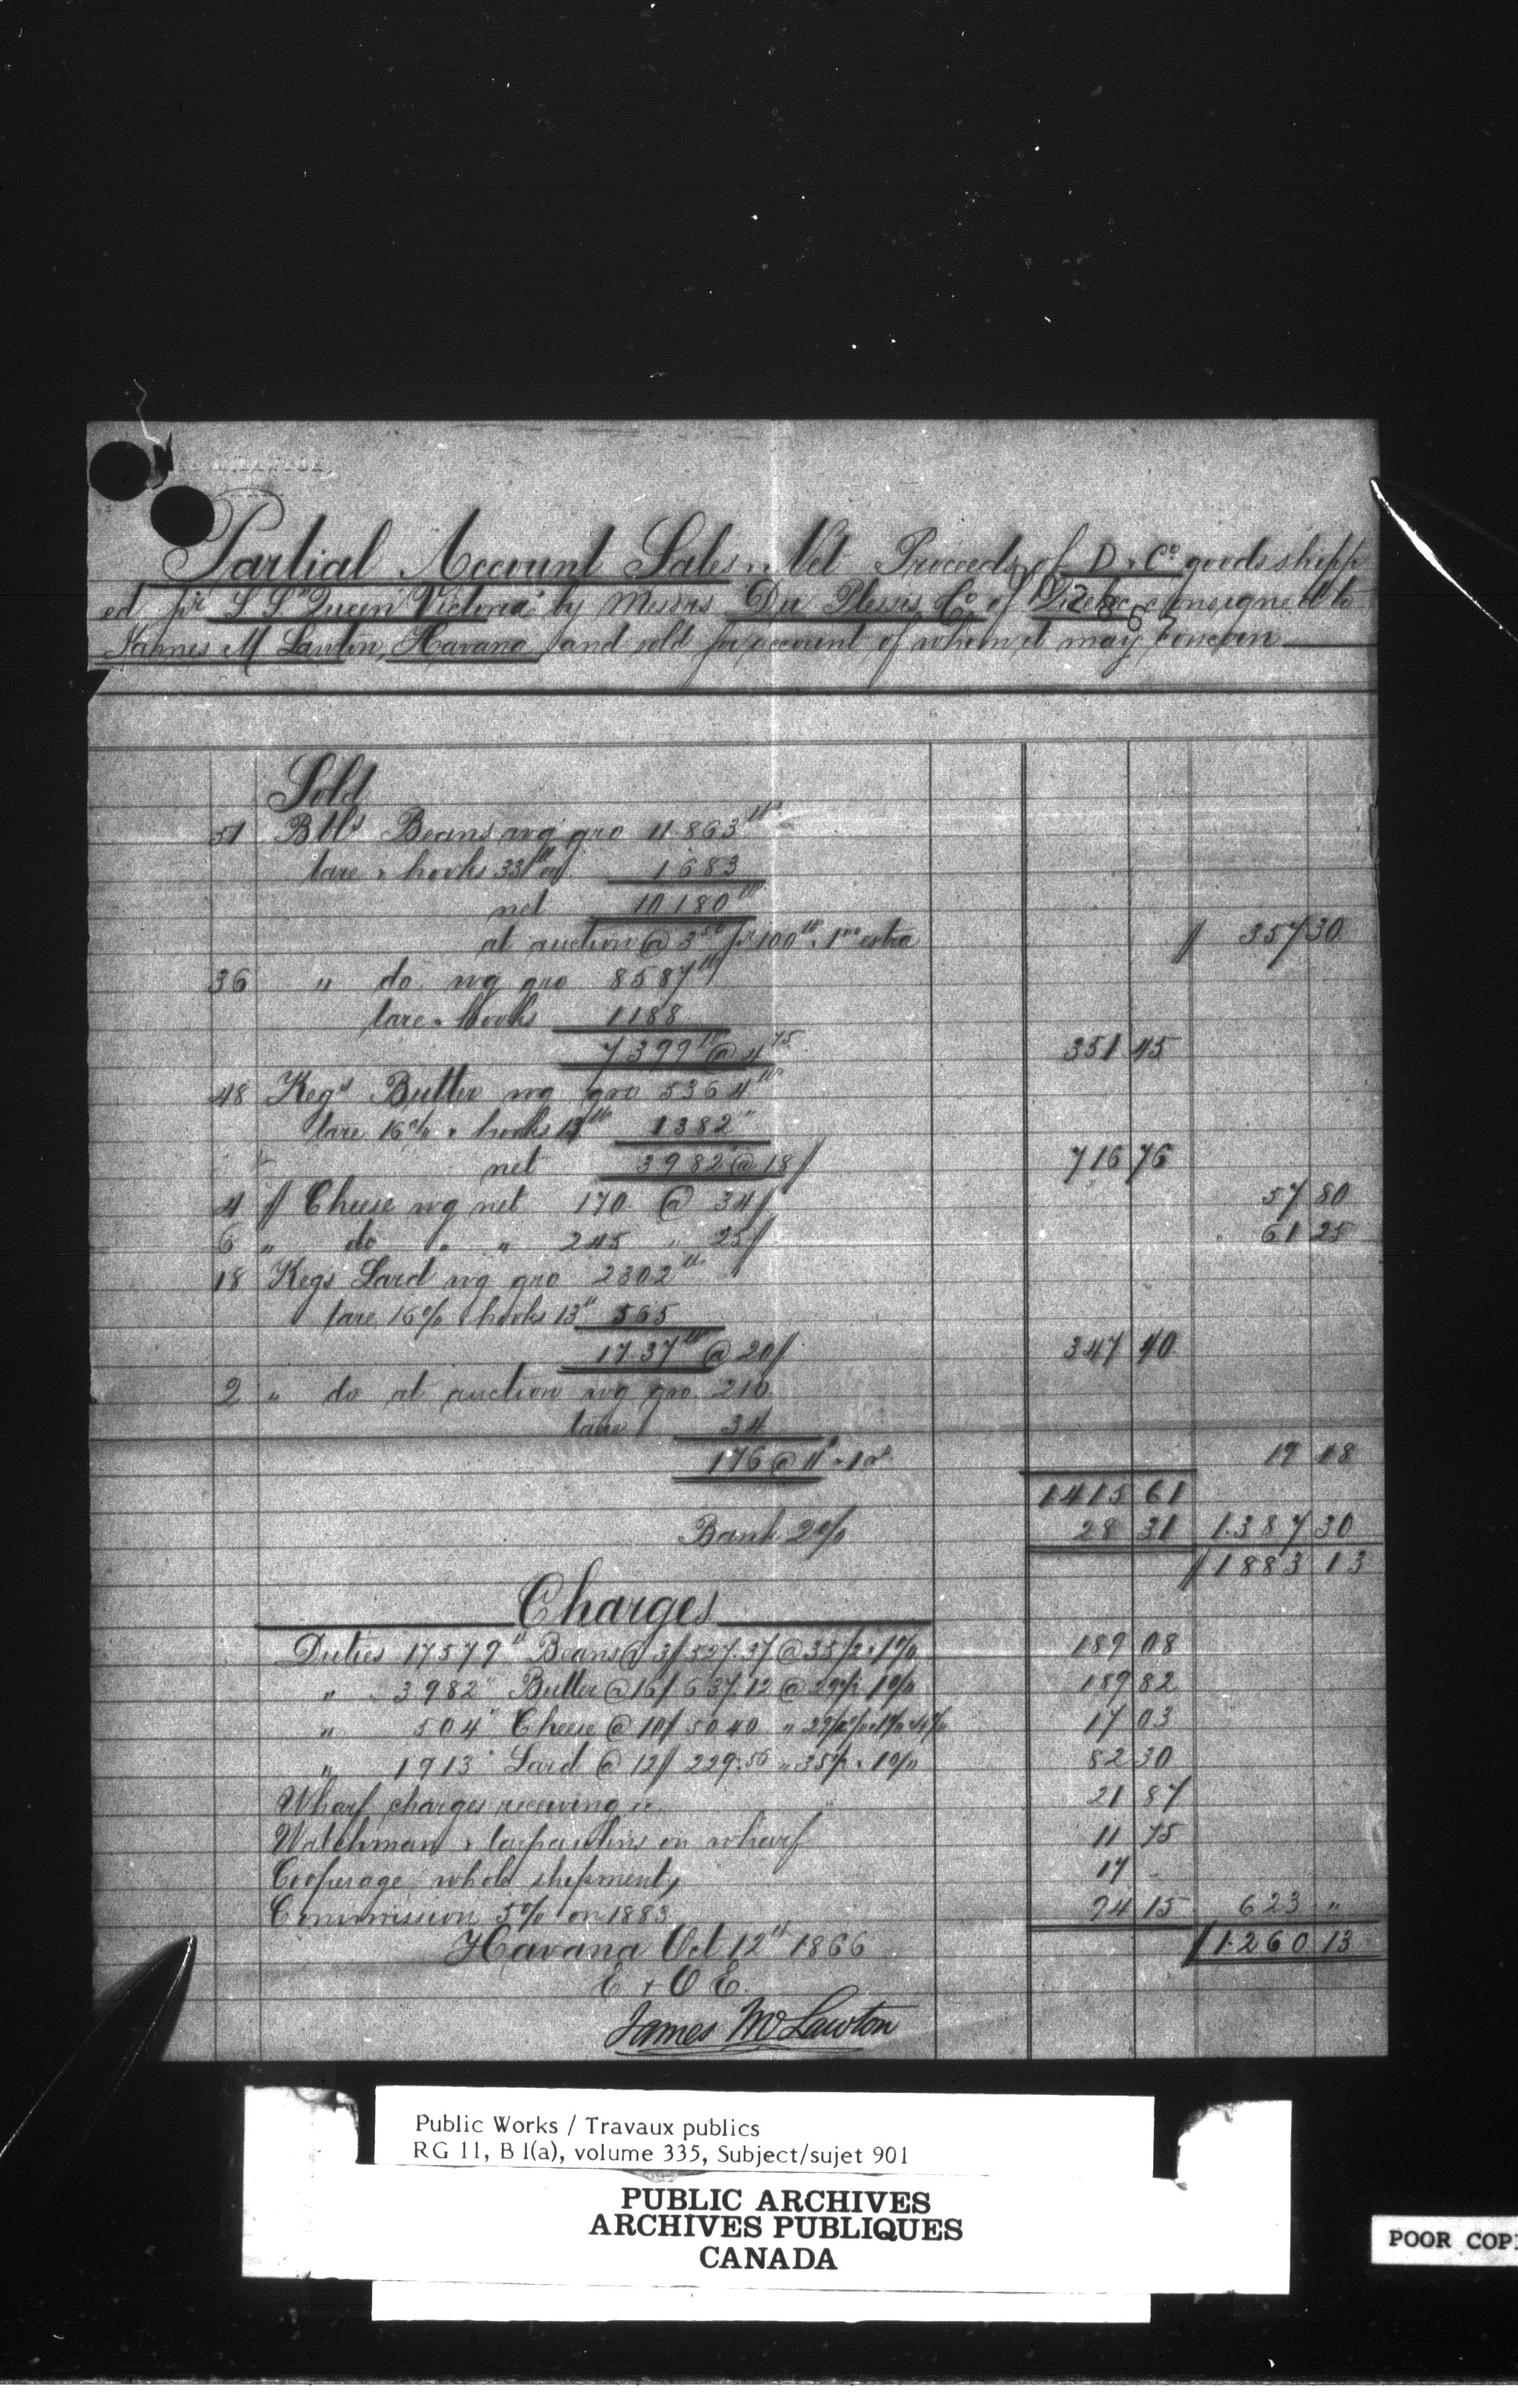 Partial Account Sales & Net Proceeds of D & Co goods shipp
ed pr S S "Queen Victoria" by Messrs Du Plessis & Co of Quebec consigned to
James M Lawton, Havana, and sold for account of whom it may concern
Sold
51 Bbls Beans wg gro 11.863 lbs
tare & hooks 33 lb ea 1683
net 10180 lbs
at auction @ 3.50 pr 100 lbs & 1 extra $ 357 30
36 " do wg gro 8587 lbs
tare & hooks 1188
7399 lbs @ 4.75 351 45
48 Kegs Butter wg gro 5364 lbs
tare 16% & hooks 13 lbs 1382 "
net 3982 @ 18/ 716 76
4 / Cheese wg net 170 @ 34/ 57 80
6 " do " " 245 " 25/ 61 25
18 Kegs Lard wg gro 2302 lbs
tare 16% & hooks 13 " 565
1737 lbs @ 20/ 347 40
2 " do at auction wg gro 210
tare 34
176 @ 19 48
1415 61
Bank 2% 28 31 1.387 30
$ 1883 13
Charges
Duties 17579 " Beans @ 3/ 527.37 @ 35½ & 1% 189 08
" 3982 " Butter @ 16/ 637.12 @ 29½ 1% 189 82
" 504 " Cheese @ 10/ 50 40 " 17 03
" 1913 " Lard @ 12/ 229.56 " 35½ & 1% 82 30
Wharf charges receiving &c 21 87
Watchman & tarpaulins on wharf 11 75
Cooperage whole shipment, 17 -
Commission 5% on 1883 94 15 623 "
Havana Oct 12th 1866 $ 1.260 13
E & O E.
James M Lawton
Public Works / Travaux publics
RG 11, B 1(a), volume 335, Subject/sujet 901
PUBLIC ARCHIVES
ARCHIVES PUBLIQUES
CANADA
POOR COP